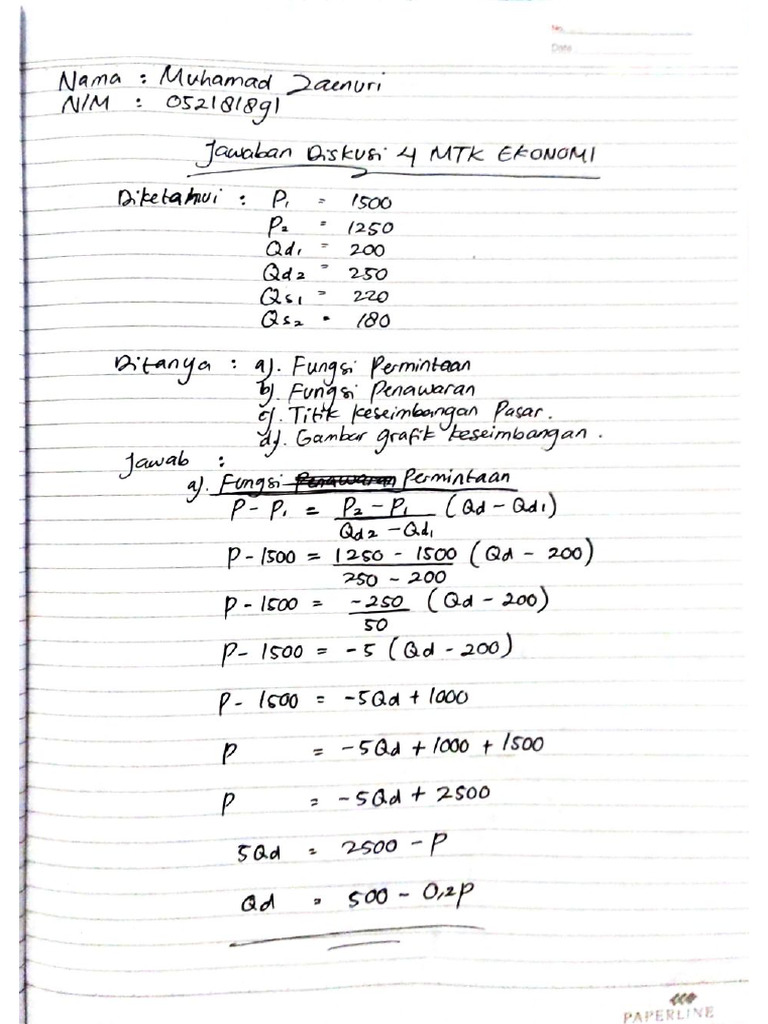 No.
Date
Nama : Muhamad Zaenuri
NIM : 052181891
Jawaban Diskusi 4 MTK EKONOMI
Diketahui : P₁ = 1500
P₂ = 1250
Qd₁ = 200
Qd₂ = 250
Qs₁ = 220
Qs₂ = 180
Ditanya : a). Fungsi Permintaan
b). Fungsi Penawaran
c). Titik keseimbangan Pasar.
d). Gambar grafik keseimbangan.
Jawab :
a). Fungsi Penawaran Permintaan
P - P₁ = P₂ - P₁ (Qd - Qd₁)
Qd₂ - Qd₁
P - 1500 = 1250 - 1500 (Qd - 200)
250 - 200
P - 1500 = -250 (Qd - 200)
50
P - 1500 = -5 (Qd - 200)
P - 1500 = -5Qd + 1000
P = -5Qd + 1000 + 1500
P = -5Qd + 2500
5Qd = 2500 - P
Qd = 500 - 0,2P
PAPERLINE